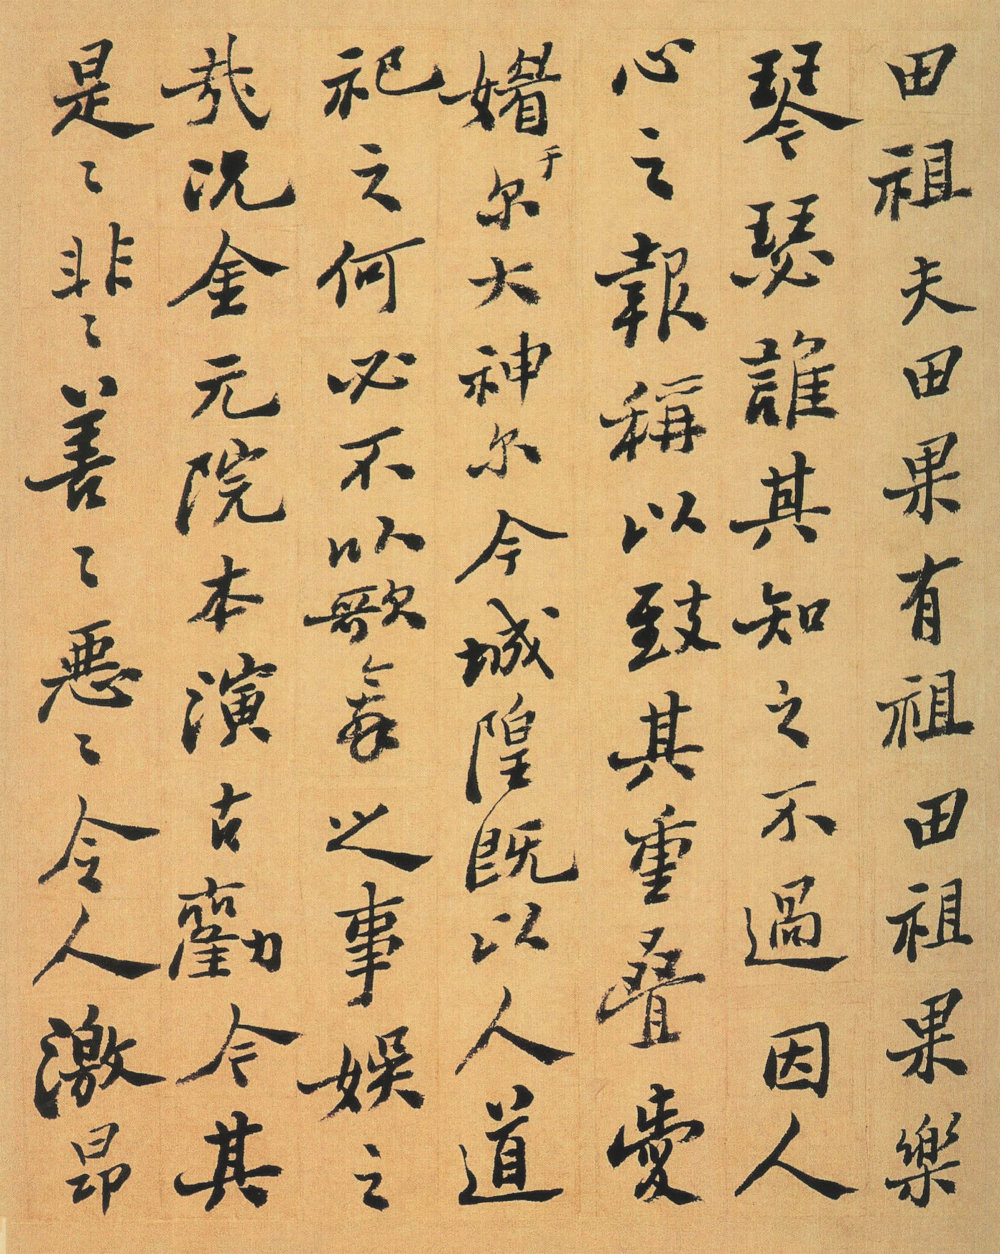 田祖夫田果有祖田祖果樂
琴瑟誰其知之不過因人
心之報稱以致其重叠愛
媚于尔大神尔今城隍既以人道
祀之何必不以歌舞之事娛之
哉况金元院本演古勸今其
是〻非〻善〻悪〻令人激昂